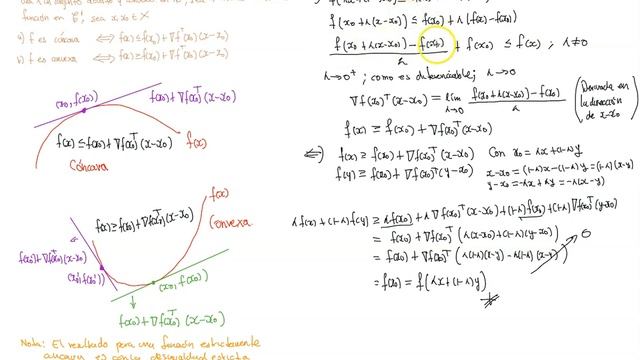 función en C¹, sea x, x₀ ∈ X
a) f es cóncava ⟺ f(x) ≤ f(x₀) + ∇f(x₀)ᵀ(x-x₀)
b) f es convexa ⟺ f(x) ≥ f(x₀) + ∇f(x₀)ᵀ(x-x₀)
(x₀, f(x₀))
f(x₀) + ∇f(x₀)ᵀ(x-x₀)
f(x) ≤ f(x₀) + ∇f(x₀)ᵀ(x-x₀)
f(x)
Cóncava
f(x)
f(x) ≥ f(x₀) + ∇f(x₀)ᵀ(x-x₀)
Convexa
f(x₀') + ∇f(x₀')ᵀ(x-x₀')
(x₀', f(x₀'))
(x₀, f(x₀))
f(x₀) + ∇f(x₀)ᵀ(x-x₀)
Nota: El resultado para una función estrictamente
f(x₀ + λ(x-x₀)) ≤ f(x₀) + λ(f(x) - f(x₀))
f(x₀ + λ(x-x₀)) - f(x₀) / λ + f(x₀) ≤ f(x) ; λ≠0
λ→0⁺ ; como es diferenciable ; λ→0
∇f(x₀)ᵀ(x-x₀) = lim λ→0 f(x₀+λ(x-x₀)) - f(x₀) / λ (Derivada en la dirección de x-x₀)
f(x) ≥ f(x₀) + ∇f(x₀)ᵀ(x-x₀)
⟸) f(x) ≥ f(x₀) + ∇f(x₀)ᵀ(x-x₀) Con x₀ = λx + (1-λ)y
f(y) ≥ f(x₀) + ∇f(x₀)ᵀ(y-x₀) x-x₀ = (1-λ)x - (1-λ)y = (1-λ)(x-y)
y-x₀ = -λx + λy = -λ(x-y)
λf(x) + (1-λ)f(y) ≥ λf(x₀) + λ∇f(x₀)ᵀ(x-x₀) + (1-λ)f(x₀) + (1-λ)∇f(x₀)ᵀ(y-x₀)
= f(x₀) + ∇f(x₀)ᵀ(λ(x-x₀) + (1-λ)(y-x₀))
= f(x₀) + ∇f(x₀)ᵀ(λ(1-λ)(x-y) - λ(1-λ)(x-y)) 0
= f(x₀) = f(λx + (1-λ)y)